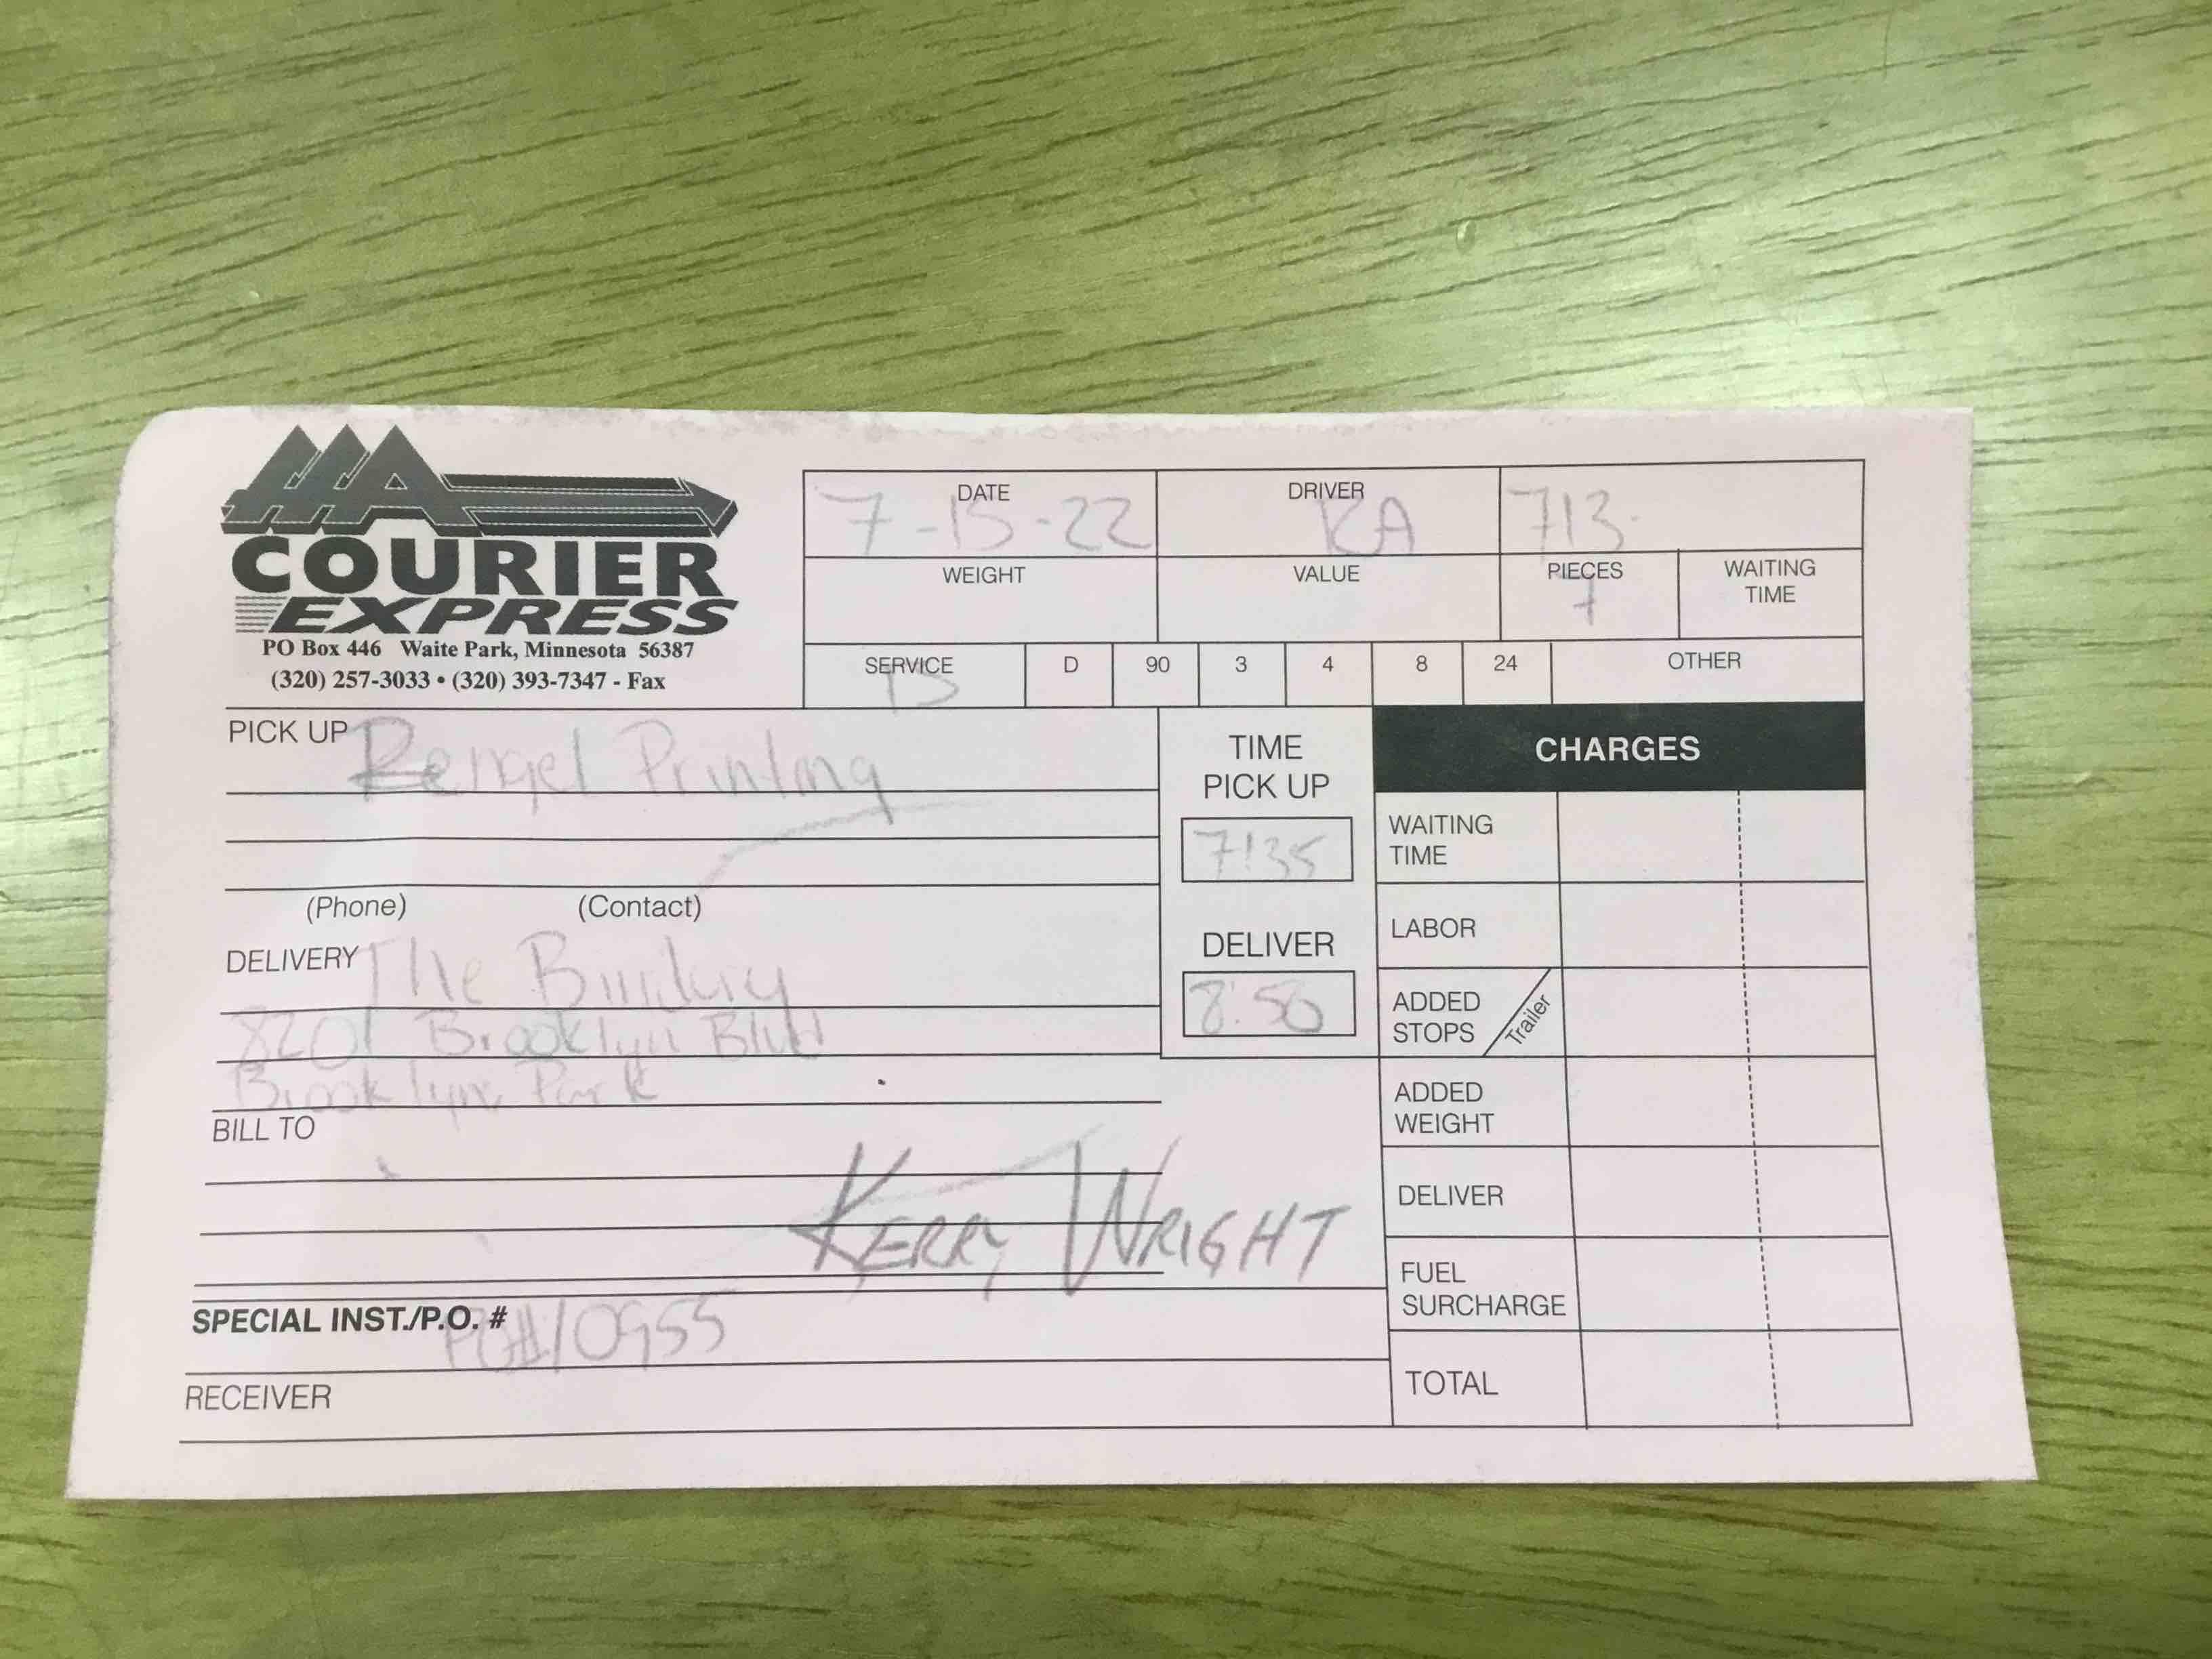 AAA
COURIER
EXPRESS
PO Box 446 Waite Park, Minnesota 56387
(320) 257-3033 • (320) 393-7347 - Fax
DATE DRIVER
7-15-22 713
WEIGHT VALUE PIECES WAITING TIME
7
SERVICE D 90 3 4 8 24 OTHER
PICK UP Rengel Printing
(Phone) (Contact)
TIME
PICK UP
7:35
DELIVERY The Bindery
8201 Brooklyn Blvd
Brooklyn Park
DELIVER
8:50
BILL TO
KERRY WRIGHT
SPECIAL INST./P.O. # PO#10955
RECEIVER
CHARGES
WAITING
TIME
LABOR
ADDED
STOPS Trailer
ADDED
WEIGHT
DELIVER
FUEL
SURCHARGE
TOTAL